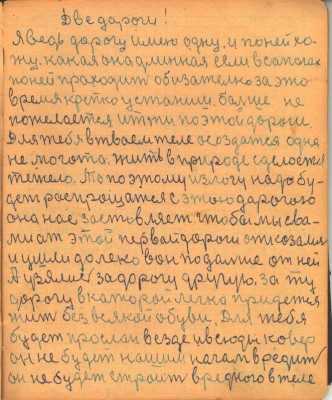 Две дороги!
Я ведь дорогу имею одну, и по ней хо-
жу, какая она длинная если в сапогах
по ней проходит обизателно за это
время крепко устаниш, балше не
пожелается итти по этой дороги.
Для тебя в твоем теле осоздатся одна
не могота. Жить в природе сделается
тежело. То поэтому из логу надо бу-
дет распрощатся с этою дорогою
она нас заставляет чтобы мы сва-
ли от этой первай дороги отказалис
и ушли долеко вон подалше от ней
А узялис за дорогу другую, за ту
дорогу в каторои легко придется
жит без всякой обуви. Для тебя
будет прослан везде и всюды ковер
он не будет нашим нагам вредит
он не будет строит вредного в теле